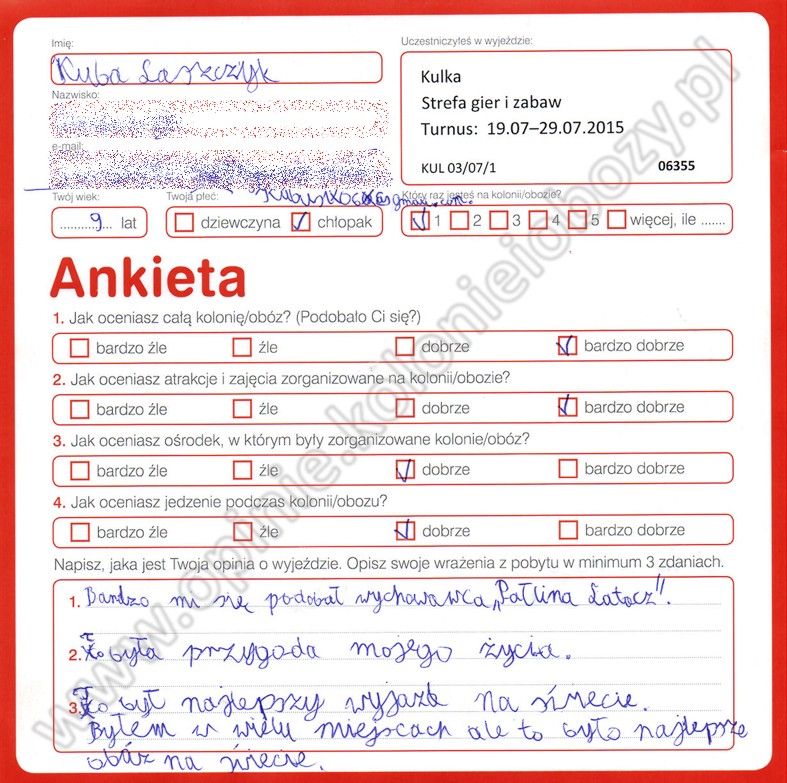 Imię:
Uczestniczyłeś w wyjeździe:
Kuba Laszczyk
Kulka
Strefa gier i zabaw
Turnus: 19.07–29.07.2015
KUL 03/07/1 06355
Nazwisko:
e-mail:
Twój wiek:
Twoja płeć:
Który raz jesteś na kolonii/obozie?
9 lat
dziewczyna chłopak
1 2 3 4 5 więcej, ile .......
Ankieta
1. Jak oceniasz całą kolonię/obóz? (Podobało Ci się?)
bardzo źle źle dobrze bardzo dobrze
2. Jak oceniasz atrakcje i zajęcia zorganizowane na kolonii/obozie?
bardzo źle źle dobrze bardzo dobrze
3. Jak oceniasz ośrodek, w którym były zorganizowane kolonie/obóz?
bardzo źle źle dobrze bardzo dobrze
4. Jak oceniasz jedzenie podczas kolonii/obozu?
bardzo źle źle dobrze bardzo dobrze
Napisz, jaka jest Twoja opinia o wyjeździe. Opisz swoje wrażenia z pobytu w minimum 3 zdaniach.
1. Bardzo mi się podobał wychowawca „Pałlina Łatacz".
2. to była przygoda mojego życia.
3. To był najlepszy wyjazd na świecie.
Byłem w wielu miejscach ale to było najlepsze
obóz na świecie.
www.opinie.kolonieiobozy.pl